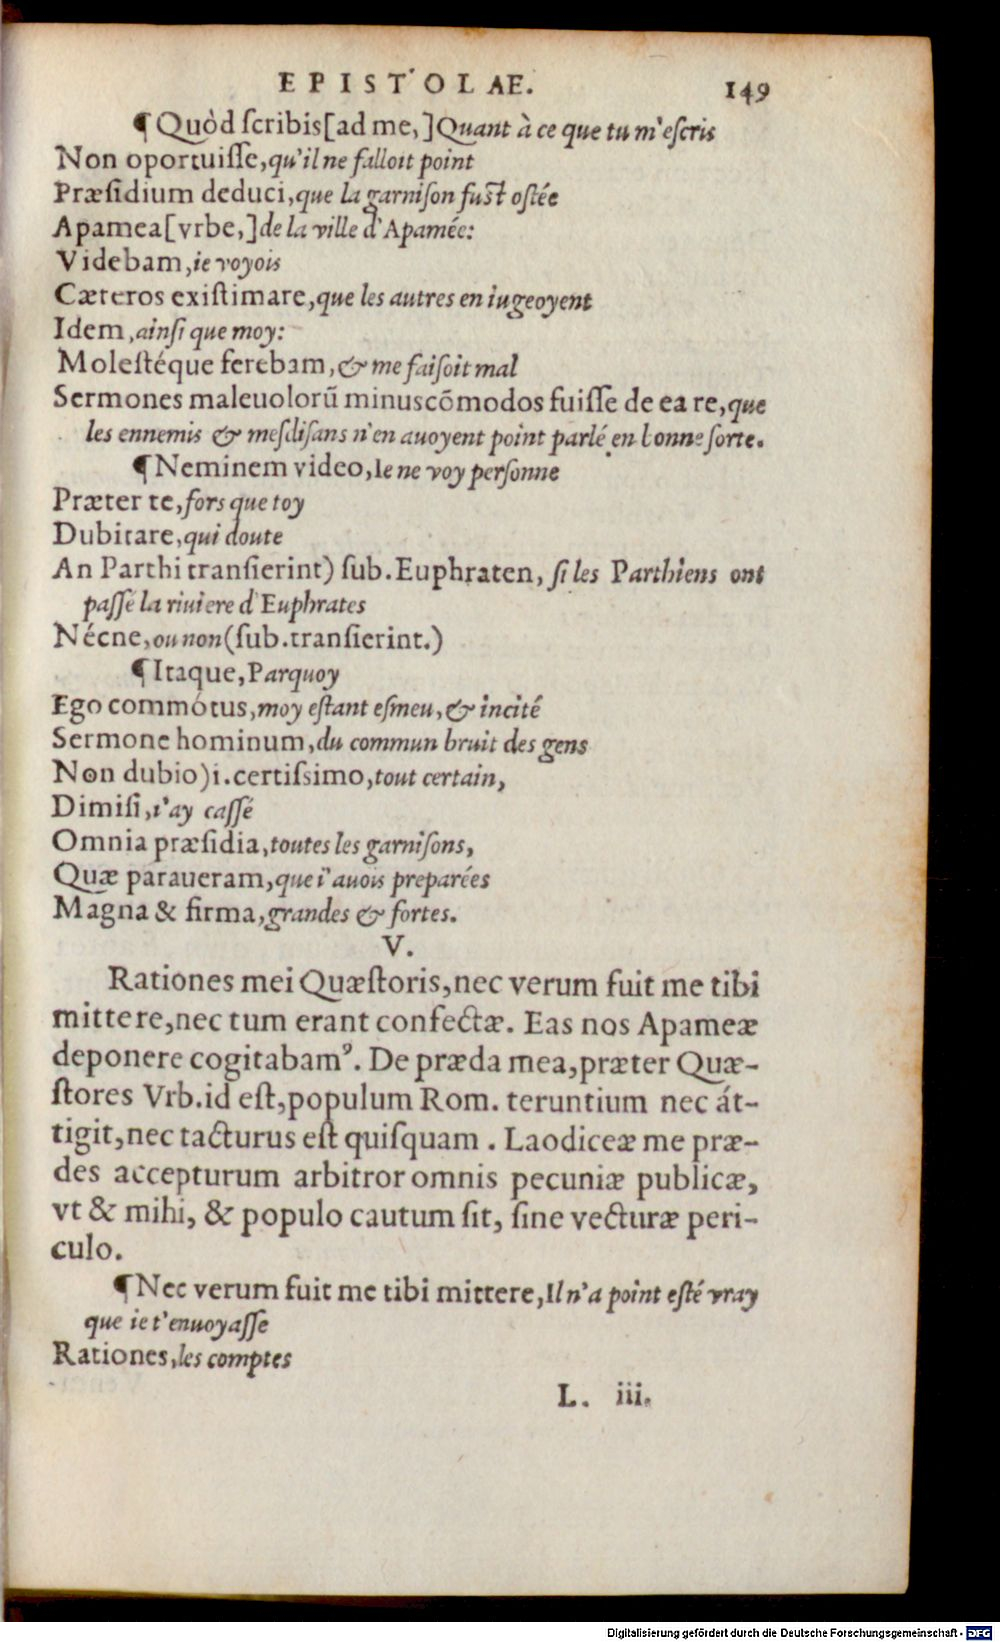 EPISTOLAE. 149
¶Quòd ſcribis[ad me,]Quant à ce que tu m'eſcris
Non oportuiſſe,qu'il ne falloit point
Præſidium deduci,que la garniſon fuſt oſtée
Apamea[vrbe,]de la ville d'Apamée:
Videbam,ie voyois
Cæteros exiſtimare,que les autres en iugeoyent
Idem,ainſi que moy:
Moleſtéque ferebam,& me faiſoit mal
Sermones maleuolorū minuscōmodos fuiſſe de ea re,que
les ennemis & meſdiſans n'en auoyent point parlé en bonne ſorte.
¶Neminem video,Ie ne voy perſonne
Præter te,fors que toy
Dubitare,qui doute
An Parthi tranſierint) ſub.Euphraten, ſi les Parthiens ont
paſſé la riuiere d'Euphrates
Nécne,ou non(ſub.tranſierint.)
¶Itaque,Parquoy
Ego commótus,moy eſtant eſmeu,& incité
Sermone hominum,du commun bruit des gens
Non dubio)i.certiſsimo,tout certain,
Dimiſi,i'ay caſſé
Omnia præſidia,toutes les garniſons,
Quæ paraueram,que i'auois preparées
Magna & firma,grandes & fortes.
V.
Rationes mei Quæſtoris,nec verum fuit me tibi
mittere,nec tum erant confectæ. Eas nos Apameæ
deponere cogitabamꝰ. De præda mea,præter Quæ-
ſtores Vrb.id eſt,populum Rom. teruntium nec át-
tigit,nec tacturus eſt quiſquam. Laodiceæ me præ-
des accepturum arbitror omnis pecuniæ publicæ,
vt & mihi, & populo cautum ſit, ſine vecturæ peri-
culo.
¶Nec verum fuit me tibi mittere,Il n'a point eſté vray
que ie t'enuoyaſſe
Rationes,les comptes
L. iii.
Digitalisierung gefördert durch die Deutsche Forschungsgemeinschaft - DFG